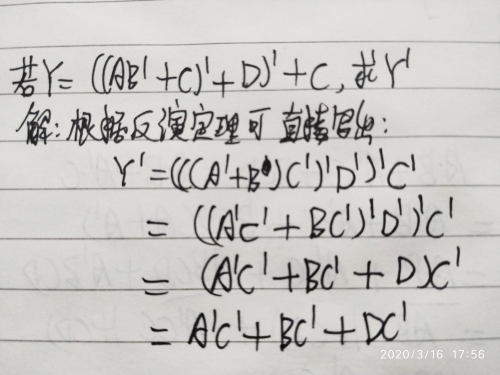 若Y=((AB'+C)'+D)'+C,求Y'
解:根据反演定理可直接写出:
Y'=(((A'+B)C')'D')'C'
=((A'C'+BC')'D')'C'
=(A'C'+BC'+D)C'
=A'C'+BC'+DC'
2020/3/16 17:56